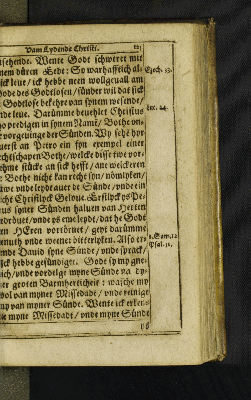 Vam Lydende Christi.
ansehende. Wente Godt schweret mit
nem düren Eede: So warhafftich als
ick leue / ick hebbe neen wolgeuall am
Dode des Godtlosen / sünder wil dat sick
de Godtlose bekehre van synem wesende /
vnde leue. Darümme beuehlet Christus
tho predigen in synem Namē / Bothe vn-
de vorgeuinge der Sünden. Wy sehē hyr
uerst an Petro ein syn exempel einer
rechtschapen Bothe / welcke disse twe vor-
nehme stücke an sick hefft / ane welckeren
e Bothe nicht kan recht syn / nömlyken /
uwe vnde leydt auer de Sünde / vnde ein
recht Christlyck Geloue. Erstlyck ys Pe-
trus syner Sünden haluen van Herten
bedröuet / vnde ys eme leydt / dat he Godt
den HEren vortörnet / geyt darümme
henuth vnde weenet bitterlyken. Also er-
kende Dauid syne Sünde / vnde sprack /
Ick hebbe gesündiget. Godt sy my gne-
dich / vnde vordelge myne Sünde na dy-
ner groten Barmherticheit: wasche my
wol van myner Missedadt / vnde reinige
my van myner Sünde. Wente ick erken-
ne myne Missedadt / vnde myne Sünde
Ezech. 33.
Luc. 24.
2. Sam. 12
Psal. 51.